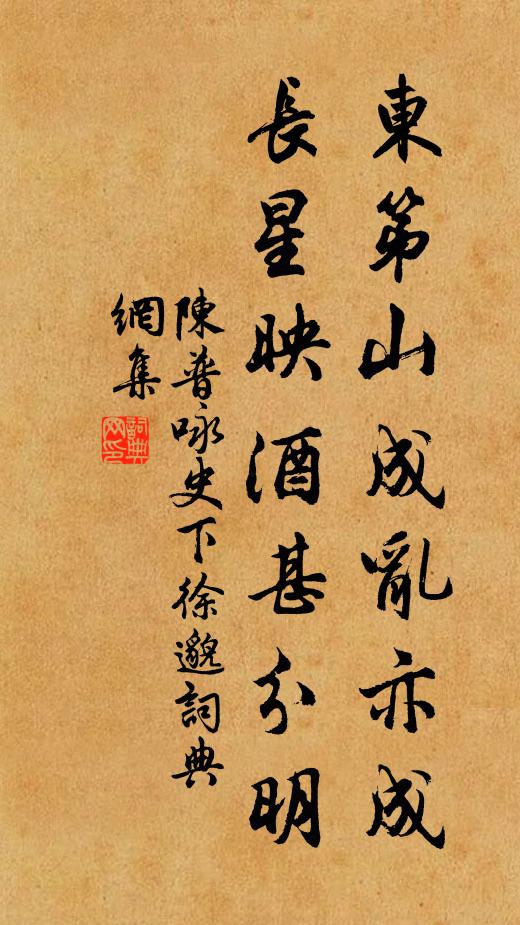 東第山成亂亦成
長星映酒甚分明
陳普咏史下徐邈詞典
網集
詞典
网印